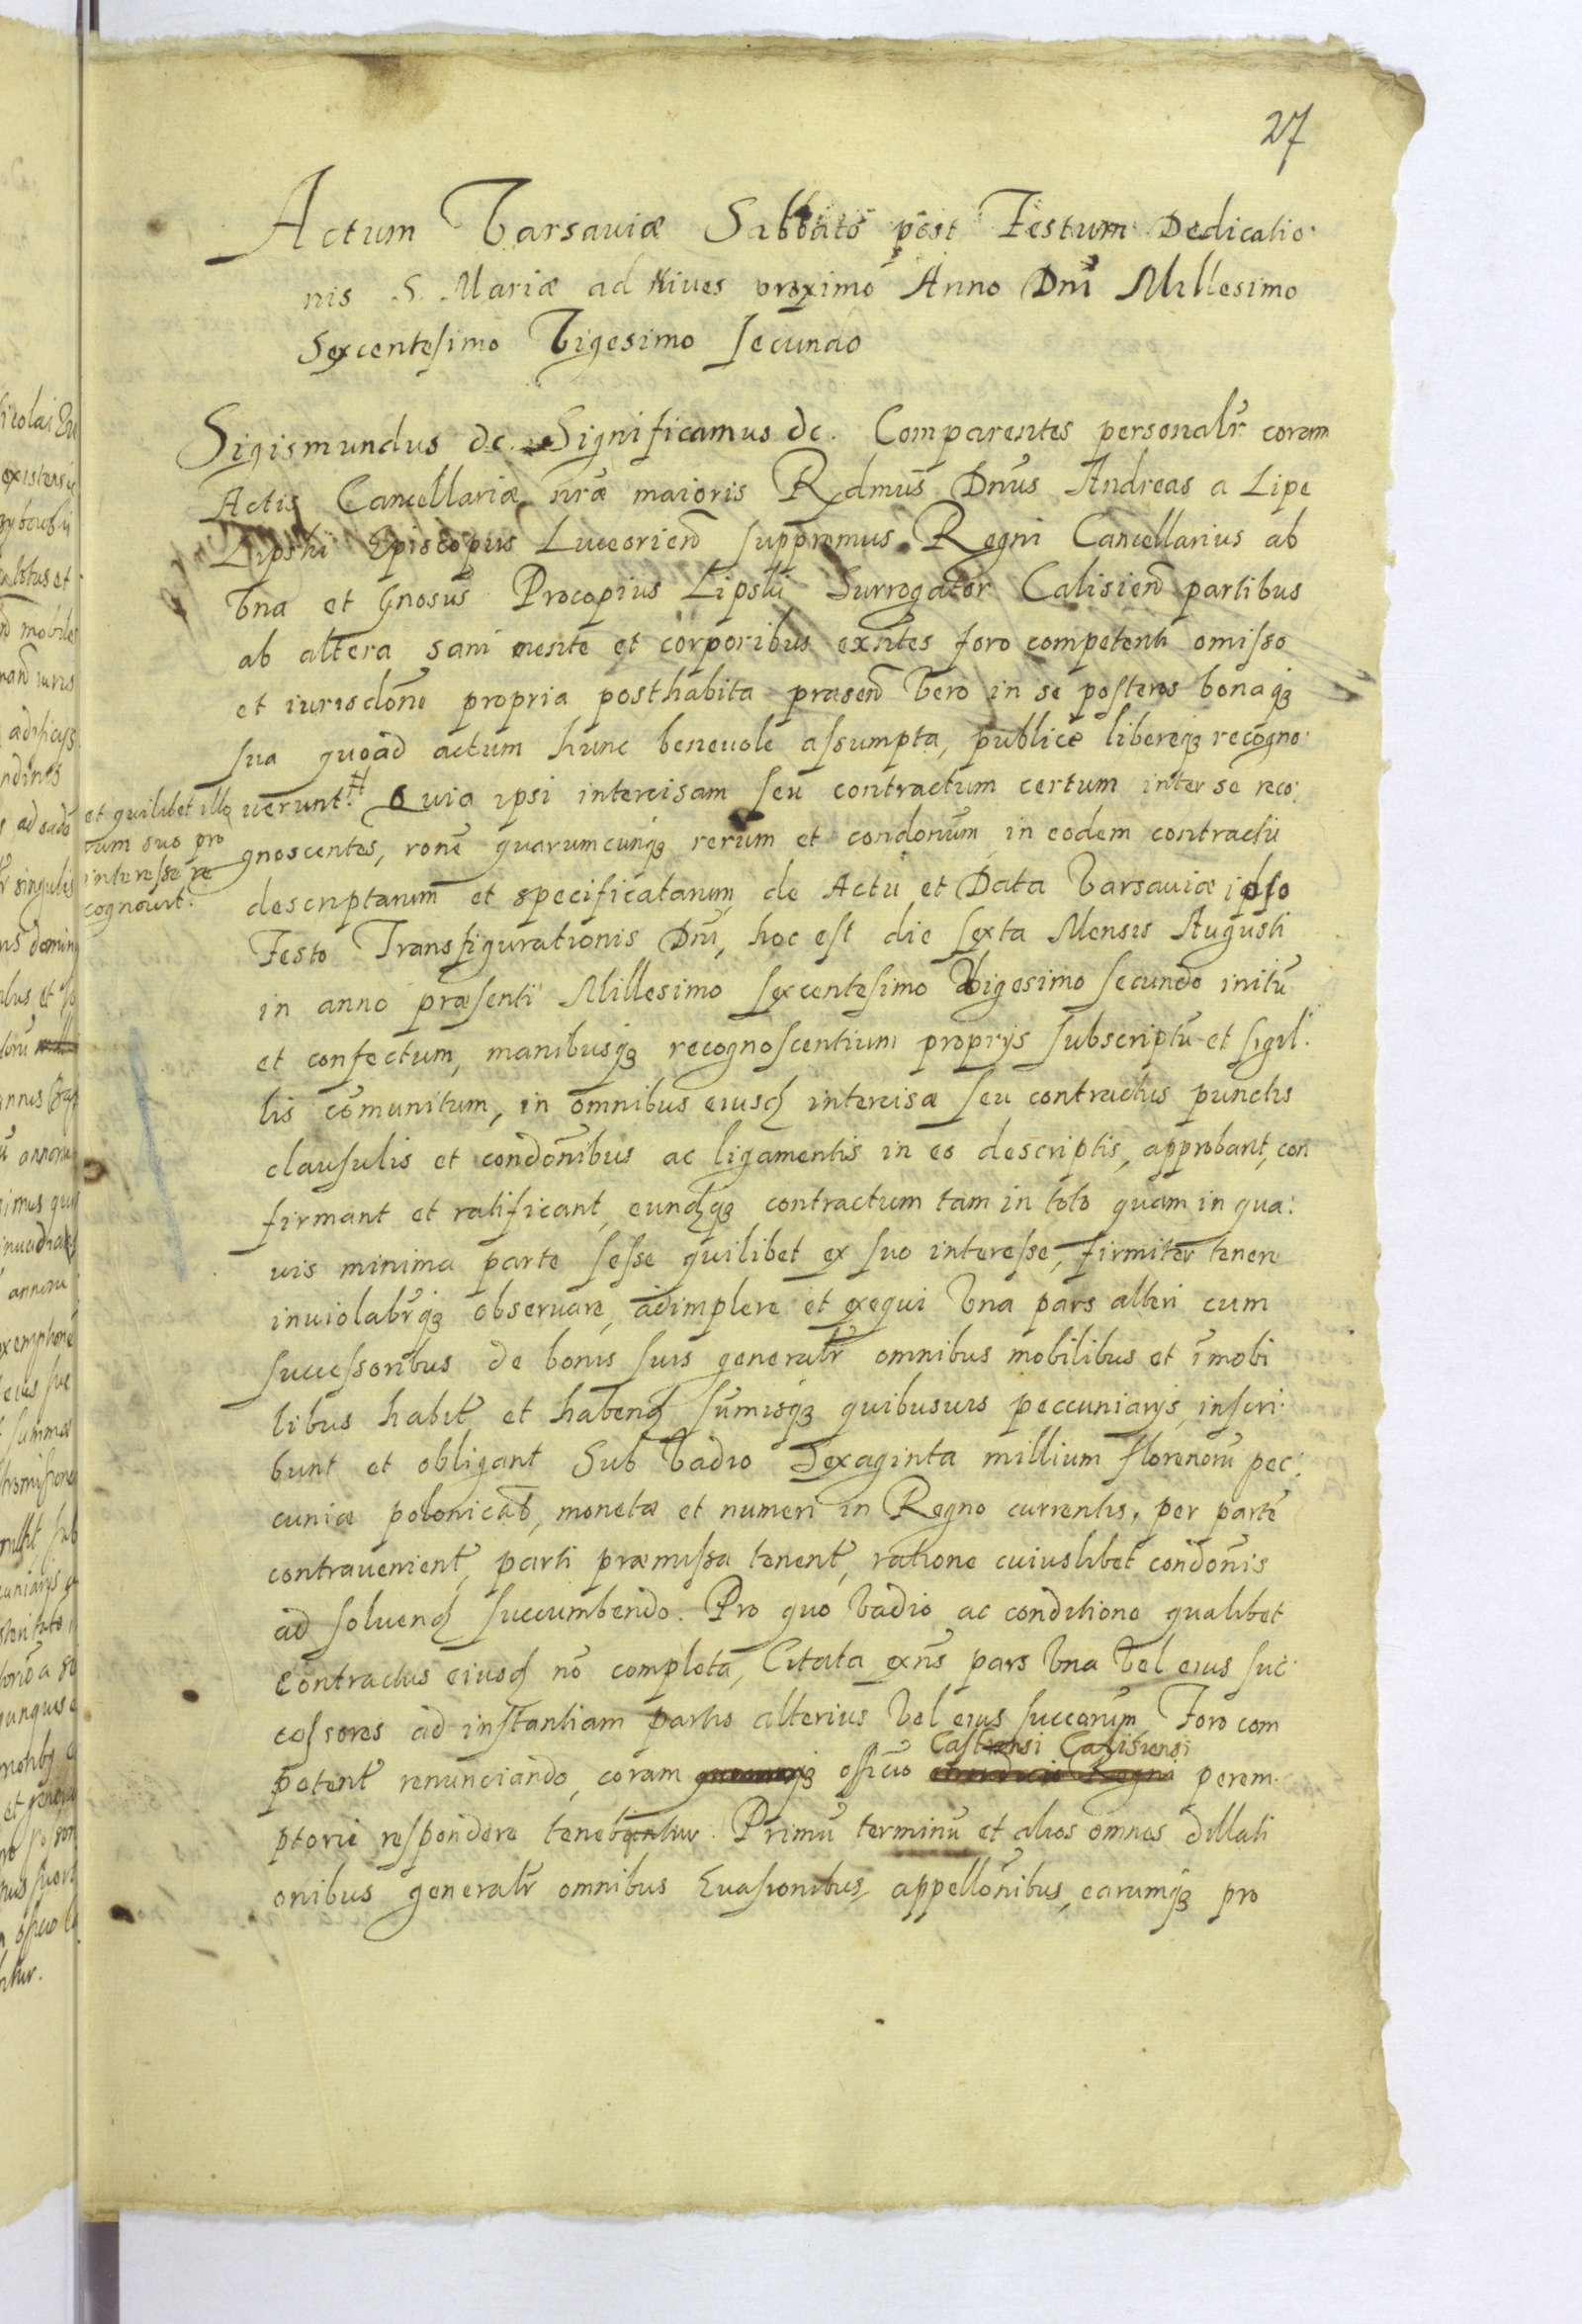 27
Actum Varsaviæ Sabbato post Festum Dedicatio
nis S. Mariæ ad Nives proximo Anno Dni Millesimo
Sexcentesimo Vigesimo secundo
Sigismundus &c. Significamus &c. Comparentes personalr coram
Actis Cancellariæ nræ maioris Rdmus Dnus Andreas a Lipe
Lipski Episcopus Luceorien suppremus Regni Cancellarius ab
Vna et Gnosus Procopius Lipski Surrogator Calisien partibus
ab altera sani mente et corporibus exntes foro competenti omisso
et iurisdone propria posthabita præsen vero in se posteros bonaq3
sua quoad actum hunc benevole assumpta, publice libereq3 recogno
verunt. # Quia ipsi intercisam seu contractum certum inter se reco
et quilibet illo
rum suo pro
interesse re
cognovit.
gnoscentes, rone quarumcunq3 rerum et condonum in eodem contractu
descriptarum et specificatarum, de Actu et Data Varsaviæ ipso
Festo Transfigurationis Dni, hoc est die sexta Mensis Augusti
in anno præsenti Millesimo sexcentesimo Vigesimo secundo initu
et confectum, manibusq3 recognoscentium proprijs subscriptu et sigil
lis comunitum, in omnibus eiusd intercisæ seu contractus punctis
clausulis et condonibus ac ligamentis in eo descriptis, approbant, con
firmant et ratificant, eundq3 contractum tam in toto quam in qua
vis minima parte sese quilibet ex suo interesse, firmiter tenere
inviolabrq3 observare, adimplere et exequi Vna pars alteri cum
successoribus de bonis suis generalr omnibus mobilibus et imobi
libus habit et habend sumisq3 quibusvis peccuniarijs, inscri
bunt et obligant Sub Vadio Sexaginta millium florenoru pec
cuniæ polonicalis, monetæ et numeri in Regno currentis, per parte
contravenient, parti præmissa tenent, ratione cuiuslibet condonis
ad solvend succumbendo. Pro quo Vadio ac conditione qualibet
contractus eiusd no completa, Citata exns pars Vna Vel eius suc
cessores ad instantiam partis alterius Vel eius succorum, Foro com
petent renunciando, coram officio Castrensi Calisiensi perem
ptorie respondere tenebuntur. Primu terminu et alios omnes dillati
onibus generalr omnibus Evasionibus, appellonibus, earumq3 pro